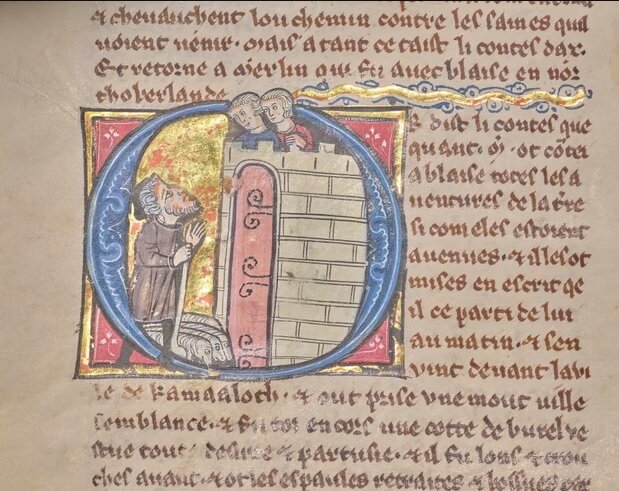 & cheuauchent lou chemin contre les saisnes quil
uoient uenir. Mais atant ce taist li contes dax.
Et retorne a Merlin qui fu auec blaise en nor
thoberlande
R dist li contes que
quant. M. ot contei
a blaise totes les a
uentures de la t're
si com eles estoient
auenues. & il les ot
mises en escrit qe
il ce parti de lui
au matin. & sen
uint deuant la vi
le de Kamaaloth. & out prise une mout uille
semblance. & fu toz encors une cotte de burel ue
stue toute desirre & partusie. & il fu lons & crou
ches auant. & ot les espaules retraites & bossues